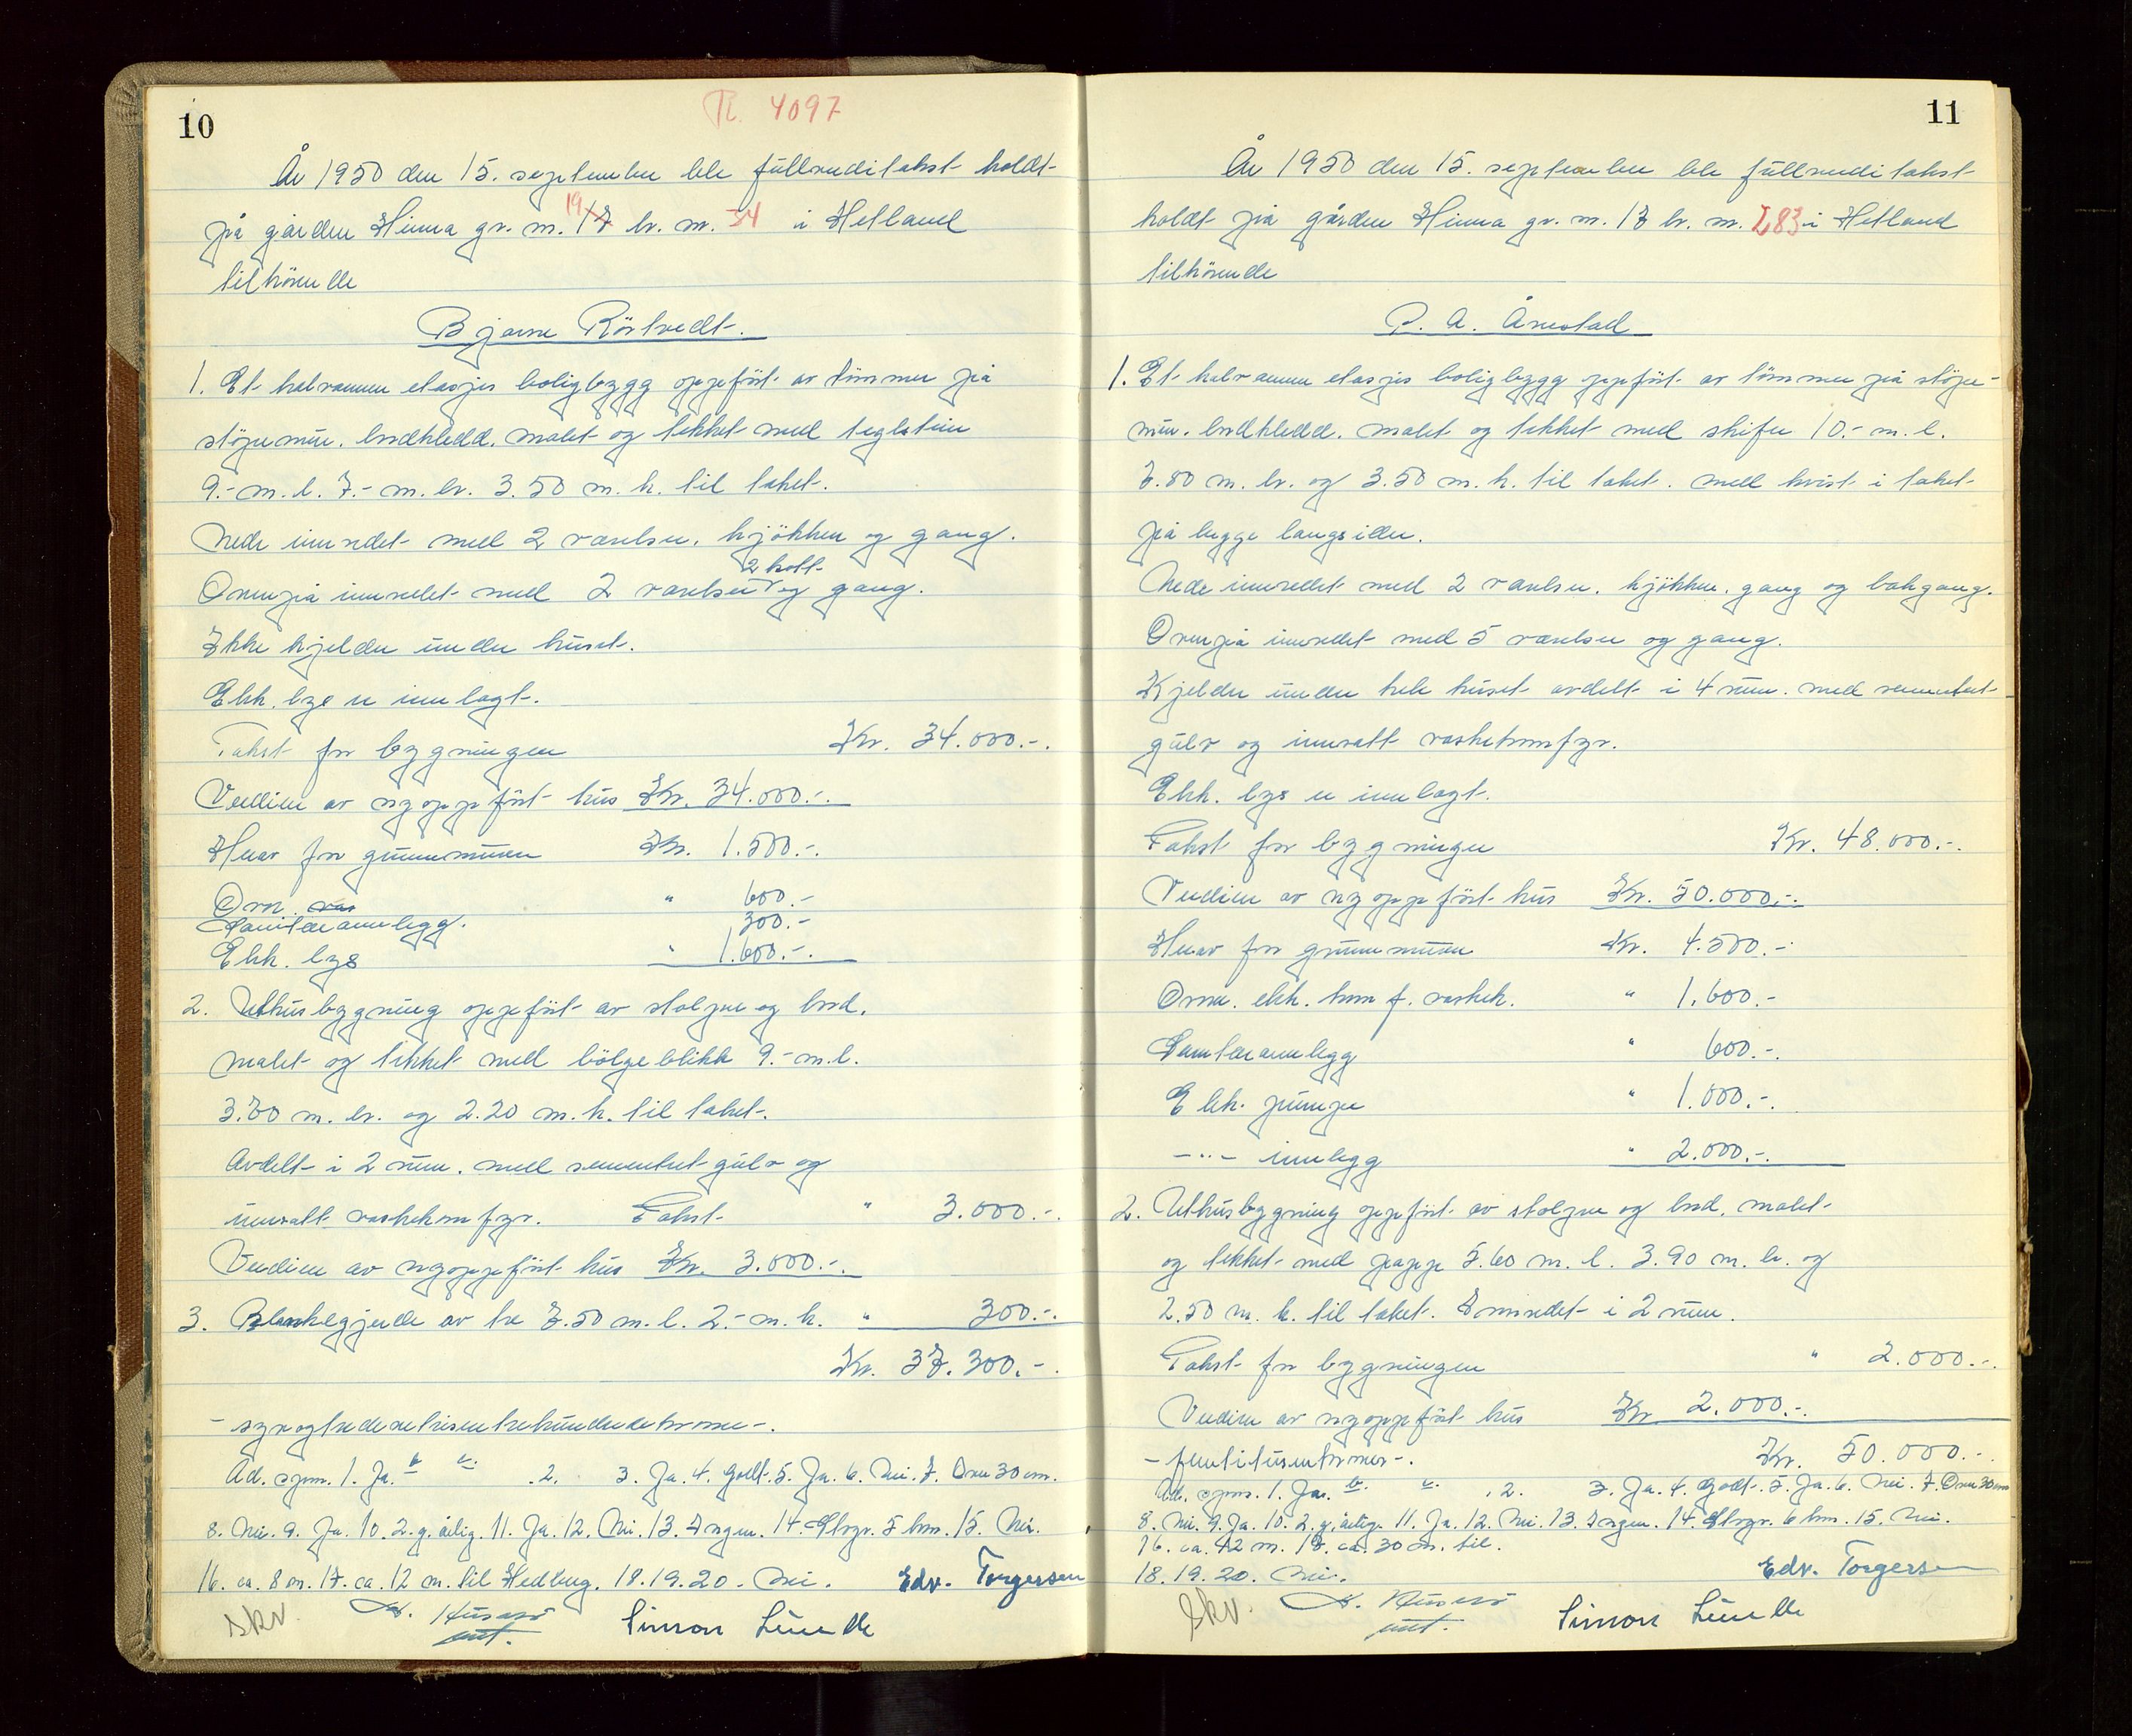 10
R. 4097
År 1950 den 15. september ble fullverditakst holdt
på gården Hinna gr. nr. 17 19 br. nr. 34 i Hetland
tilhörende
Bjarne Rörtvedt.
1. Et halvannen etasjes boligbygg oppfört av tömmer på
stöpemur. bordkledd. malet og tekket med teglstein
9.- m. l. 7.- m. br. 3.50 m. h. til taket.
Nede innredet med 2 værelser, kjökken og gang.
Ovenpå innredet med 2 værelser 2 kott og gang.
Ikke kjelder under huset.
Elek. lys er innlagt.
Takst for bygningen Kr. 34.000.-.
Verdien av nyoppfört hus Kr. 34.000.-.
Herav for grunnmuren Kr. 1.500.-.
Ovn. " 600.-
Sanitæranlegg. 300.-
Elek. lys " 1.600.-.
2. Uthusbygning oppfört av stolper og bord.
malet og tekket med bölgeblikk 9.- m. l.
3.70 m. br. og 2.20 m. h. til taket.
Avdelt i 2 rum. med sementert gulv og
innsatt vaskekomfyr. Takst " 3.000.-.
Verdien av nyoppfört hus Kr. 3.000.-.
3. Plankegjerde av tre 7.50 m. l. 2.- m. h. " 300.-.
Kr. 37.300.-.
- syvogtredevetusentrehundredekroner -.
Ad. spm. 1. Ja. b c. .2. 3. Ja. 4. Godt. 5. Ja. 6. Nei. 7. Over 30 cm.
8. Nei. 9. Ja. 10. 2. g. årlig. 11. Ja. 12. Nei. 13. Ingen. 14. Stvgr. 5 km. 15. Nei.
16. ca. 8 m. 17. ca. 12 m. til Hedberg. 18. 19. 20. Nei. Edv. Torgersen
skv. Simon Lunde
11
År 1950 den 15. september ble fullverditakst
holdt på gården Hinna gr. nr. 17 br. nr. 283 i Hetland
tilhörende
P. A. Årrestad
1. Et halvannen etasjes boligbygg oppfört av tömmer på stöpe-
mur. bordkledd. malet og tekket med skifer 10.- m. l.
7.80 m. br. og 3.50 m. h. til taket. med kvist i taket
på begge langsider.
Nede innredet med 2 værelser, kjökken, gang og bakgang.
Ovenpå innredet med 5 værelser og gang.
Kjelder under hele huset avdelt i 4 rum. med sementert
gulv og innsatt vaskekomfyr.
Elek. lys er innlagt.
Takst for bygningen Kr. 48.000.-.
Verdien av nyoppfört hus Kr. 50.000.-.
Herav for grunnmuren Kr. 4.500.-.
Ovner. elek. kom f. vaskek. " 1.600.-
Sanitæranlegg " 600.-.
Elek. pumpe " 1.000.-.
-"- innlegg " 2.000.-.
2. Uthusbygning oppfört av stolper og bord. malet
og tekket med papp 5.60 m. l. 3.90 m. br. og
2.50 m. h. til taket. Innredet i 2 rum.
Takst for bygningen " 2.000.-.
Verdien av nyoppfört hus Kr 2.000.-.
- femtitusenkroner -. Kr. 50.000.-
Ad. spm. 1. Ja. b. c. .2. 3. Ja. 4. Godt. 5. Ja. 6. Nei. 7. Over 30 cm
8. Nei. 9. Ja. 10. 2. g. årlig. 11. Ja. 12. Nei. 13. Ingen. 14. Stvgr. 6 km. 15. Nei.
16. ca. 12 m. 17. ca. 30 m. til.
18. 19. 20. Nei. Edv. Torgersen
Skv. Simon Lunde